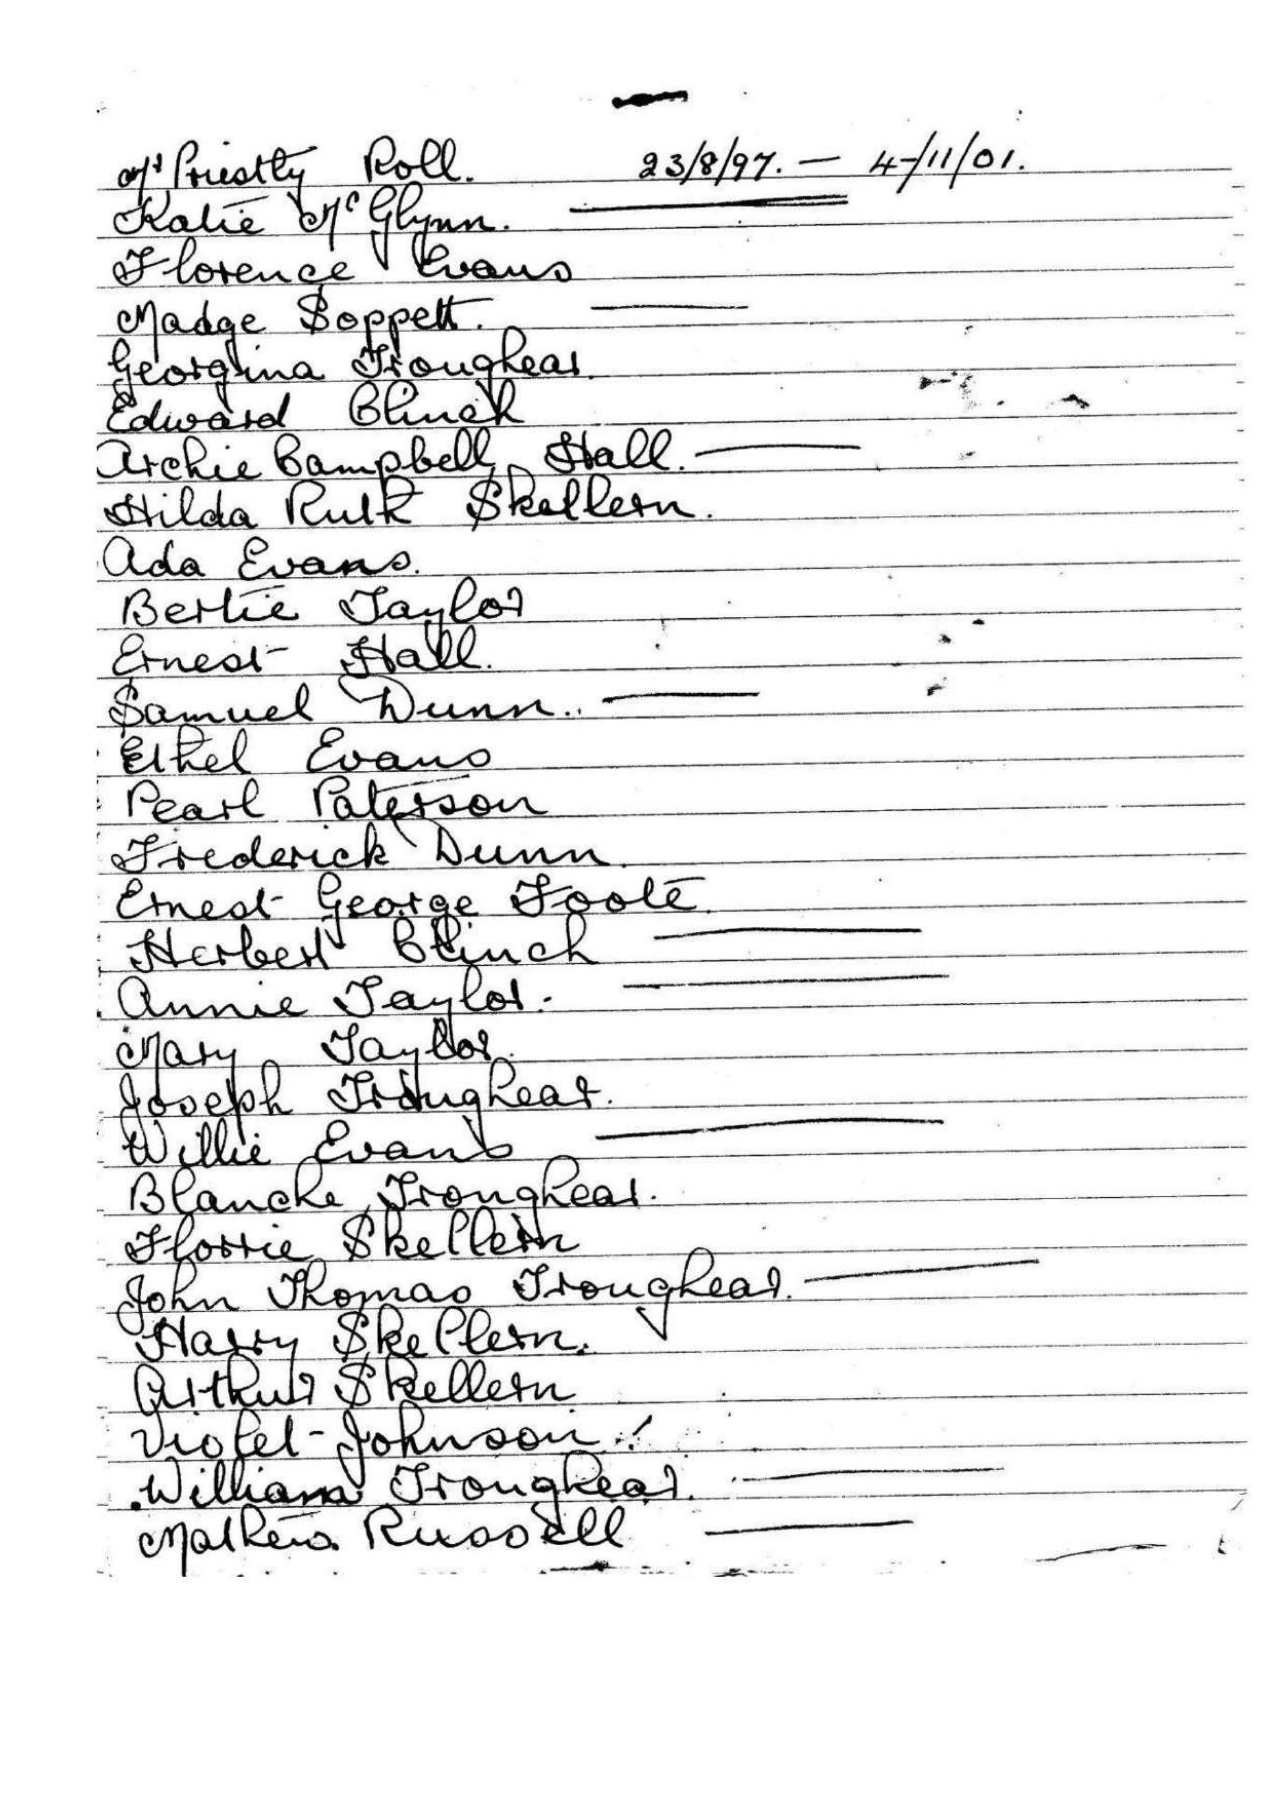 Mr Priestly Roll. 23/8/97. — 4/11/01.
Katie McGlynn.
Florence Evans
Madge Soppett.
Georgina Troughear.
Edward Blinch
Archie Campbell Hall.
Hilda Ruth Skellern.
Ada Evans.
Bertie Taylor
Ernest Hall.
Samuel Dunn.
Ethel Evans
Pearl Paterson
Frederick Dunn.
Ernest George Foote.
Herbert Blinch
Annie Taylor.
Mary Taylor.
Joseph Troughear.
Willie Evans
Blanche Troughear.
Florrie Skellern
John Thomas Troughear.
Harry Skellern.
Arthur Skellern
Violet Johnson
William Troughear.
Mathew Russell